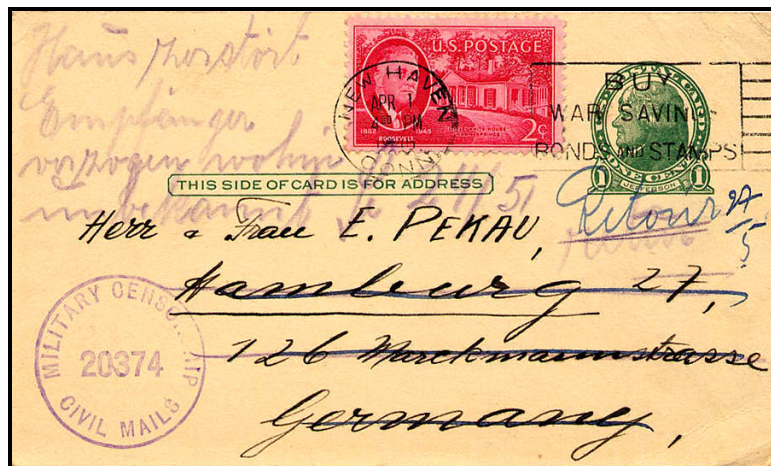 Haus zerstört
Empfänger
verzogen wohin
unbekannt 24/5
U.S. POSTAGE
1882 1945
ROOSEVELT
2¢
NEW HAVEN
APR 1
PM
CONN.
BUY
WAR SAVINGS
BONDS AND STAMPS
ONE CENT
1 JEFFERSON 1
THIS SIDE OF CARD IS FOR ADDRESS
Retour 27/5
Herr & Frau E. PEKAU,
Hamburg 27,
126 Marckmannstrasse
Germany,
MILITARY CENSORSHIP
20374
CIVIL MAILS